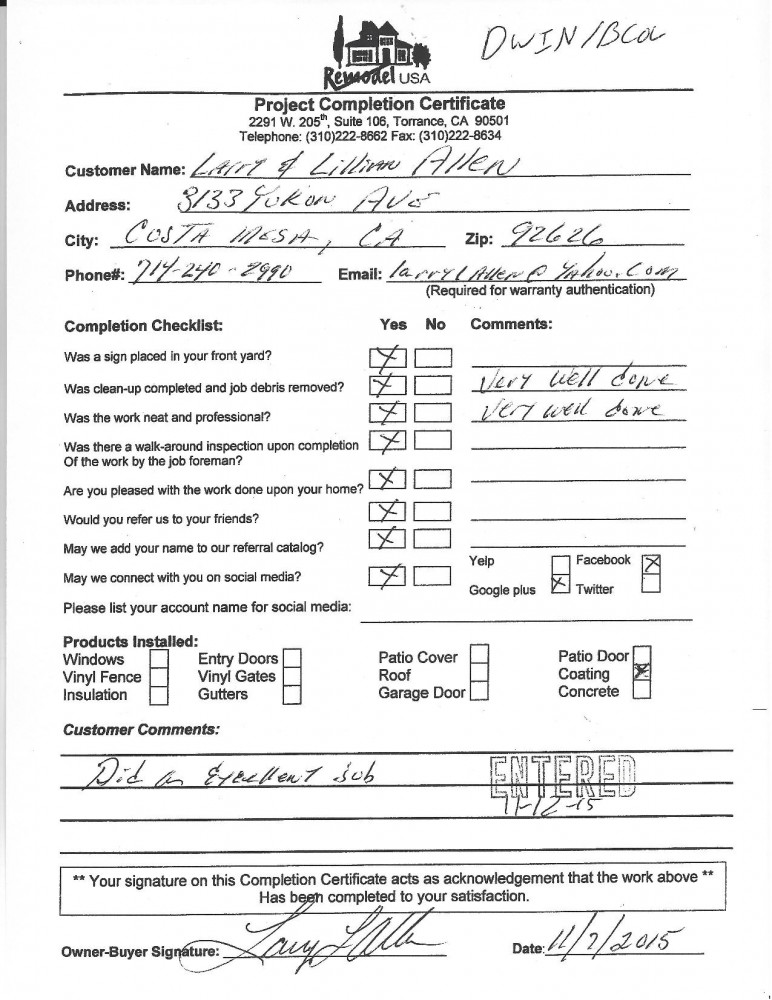 DWIN/BCOL
Remodel USA
Project Completion Certificate
2291 W. 205th, Suite 106, Torrance, CA 90501
Telephone: (310)222-8662 Fax: (310)222-8634
Customer Name: Larry & Lillian Allen
Address: 3133 Yukon Ave
City: Costa Mesa, CA Zip: 92626
Phone#: 714-240-2990 Email: larrylAllen@Yahoo.Com
(Required for warranty authentication)
Completion Checklist: Yes No Comments:
Was a sign placed in your front yard? X
Was clean-up completed and job debris removed? X Very well done
Was the work neat and professional? X Very well done
Was there a walk-around inspection upon completion X
Of the work by the job foreman?
Are you pleased with the work done upon your home? X
Would you refer us to your friends? X
May we add your name to our referral catalog? X
Yelp Facebook X
May we connect with you on social media? X
Google plus X Twitter
Please list your account name for social media:
Products Installed:
Windows Entry Doors Patio Cover Patio Door
Vinyl Fence Vinyl Gates Roof Coating X
Insulation Gutters Garage Door Concrete
Customer Comments:
Did an Excellent job ENTERED
11-12-15
** Your signature on this Completion Certificate acts as acknowledgement that the work above **
Has been completed to your satisfaction.
Owner-Buyer Signature: Larry L Allen Date: 11/7/2015